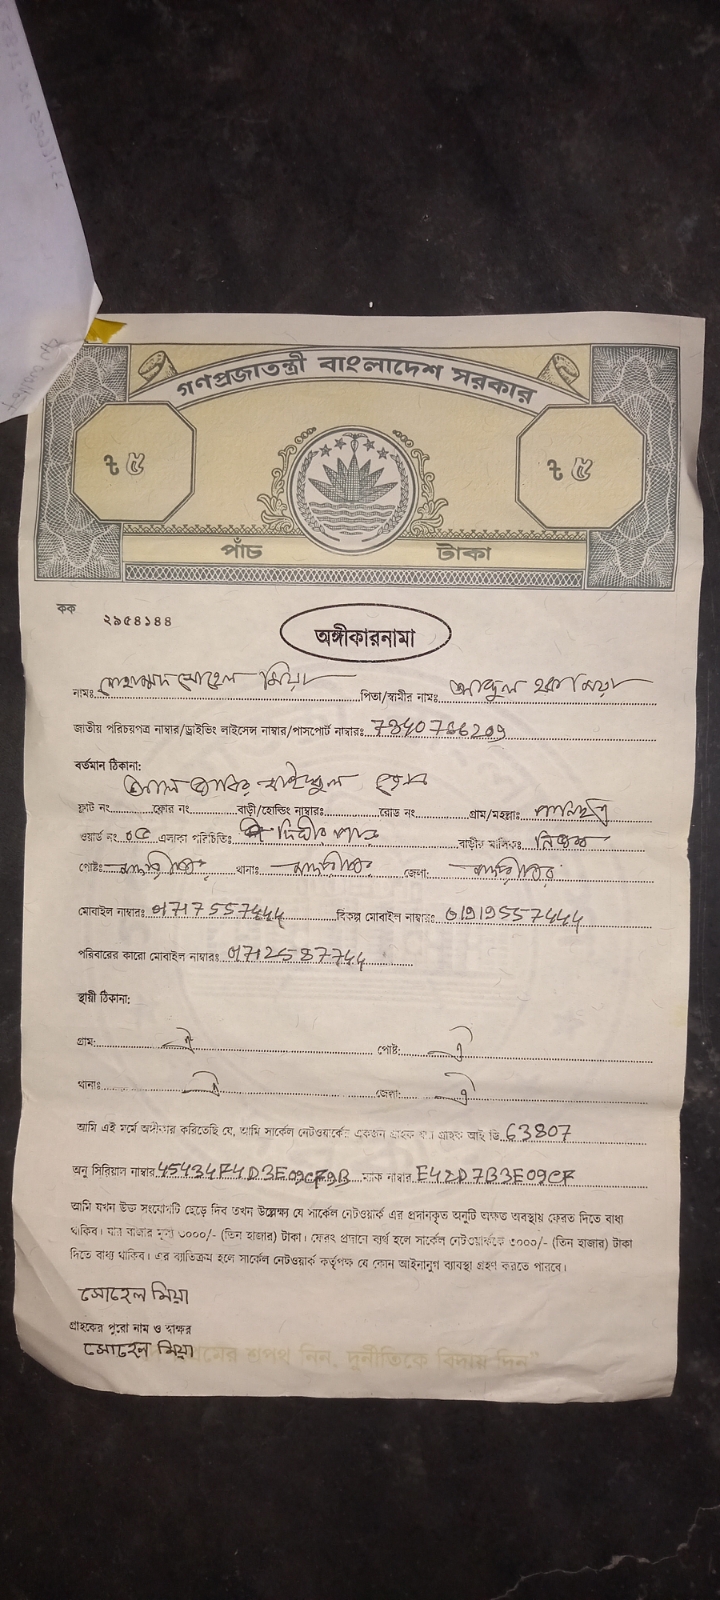 গণপ্রজাতন্ত্রী বাংলাদেশ সরকার
৳ ৫ ৳ ৫
পাঁচ টাকা
কক ২৯৫৪১৪৪
অঙ্গীকারনামা
নামঃ মোহাম্মদ সোহেল মিয়া পিতা/স্বামীর নামঃ আব্দুল হক মিয়া
জাতীয় পরিচয়পত্র নাম্বার/ড্রাইভিং লাইসেন্স নাম্বার/পাসপোর্ট নাম্বারঃ 7340766209
বর্তমান ঠিকানা:
ফ্লাট নং ফ্লোর নং বাড়ী/হোল্ডিং নাম্বারঃ রোড নং গ্রাম/মহল্লাঃ
ওয়ার্ড নং ০৫ এলাকা পরিচিতিঃ দিঘীর পাড় বাড়ীর মালিকঃ নিজস্ব
পোষ্টঃ থানাঃ জেলা:
মোবাইল নাম্বারঃ 01717557444 বিকল্প মোবাইল নাম্বারঃ 01919557444
পরিবারের কারো মোবাইল নাম্বারঃ 01712587744
স্থায়ী ঠিকানা:
গ্রাম: ঐ পোষ্ট: ঐ
থানাঃ ঐ জেলা: ঐ
আমি এই মর্মে অঙ্গীকার করিতেছি যে, আমি সার্কেল নেটওয়ার্কের একজন গ্রাহক যার গ্রাহক আই ডি 63807
অনু সিরিয়াল নাম্বার 45434F4D3E09CF9B ম্যাক নাম্বার E42D7B3E09CF
আমি যখন উক্ত সংযোগটি ছেড়ে দিব তখন উল্লেক্ষ্য যে সার্কেল নেটওয়ার্ক এর প্রদানকৃত অনুটি অক্ষত অবস্থায় ফেরত দিতে বাধ্য
থাকিব। যার বাজার মূল্য ৩০০০/- (তিন হাজার) টাকা। ফেরৎ প্রদানে ব্যর্থ হলে সার্কেল নেটওয়ার্ককে ৩০০০/- (তিন হাজার) টাকা
দিতে বাধ্য থাকিব। এর ব্যতিক্রম হলে সার্কেল নেটওয়ার্ক কর্তৃপক্ষ যে কোন আইনানুগ ব্যবস্থা গ্রহণ করতে পারবে।
সোহেল মিয়া
গ্রাহকের পুরো নাম ও স্বাক্ষর
সোহেল মিয়া
শপথ নিন, দুর্নীতিকে বিদায় দিন"